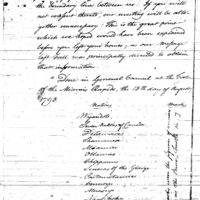 the boundary line between us. If you will
not consent thereto, our meeting will be alto-
gether unnecessary. This is the great point
which we hoped would have been explained
before you left your houses; as our message
last fall was principally directed to obtain
that information
Done in General Council at the Foot
of the Miamis Rapids, the 13th day of August
1793.
Nations
Wyandots
Seven Nations of Canada
Delawares
Shawanese
Miamies
Ottawas
Chippawas
Senecas of the Glaize
Pottawatamies
Connoys
Munseys